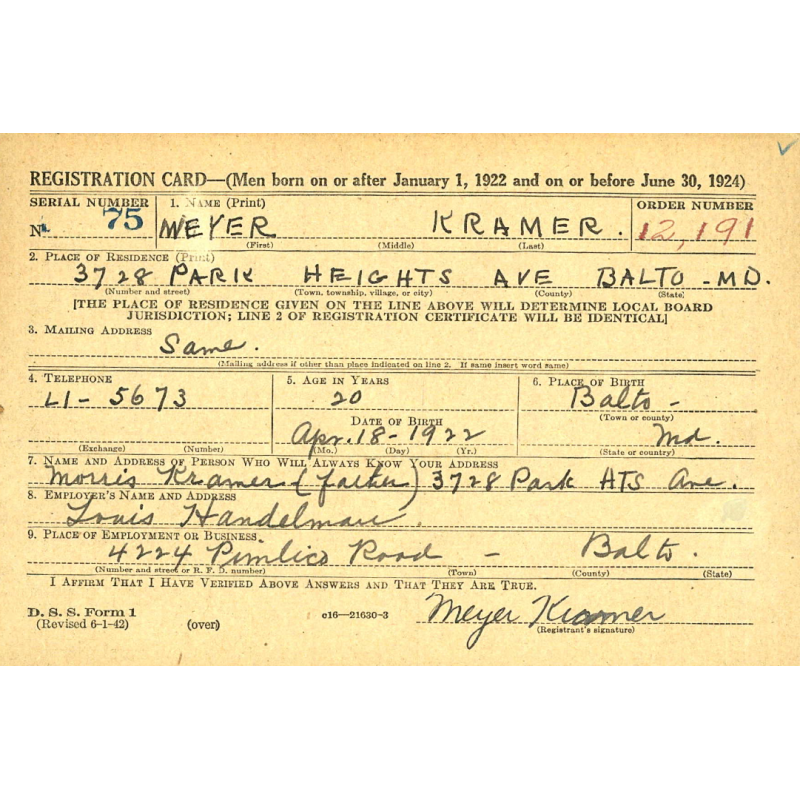 REGISTRATION CARD—(Men born on or after January 1, 1922 and on or before June 30, 1924)
SERIAL NUMBER 1. NAME (Print) ORDER NUMBER
N. 75 MEYER KRAMER. 12,191
(First) (Middle) (Last)
2. PLACE OF RESIDENCE (Print)
3728 PARK HEIGHTS AVE BALTO - MD.
(Number and street) (Town, township, village, or city) (County) (State)
[THE PLACE OF RESIDENCE GIVEN ON THE LINE ABOVE WILL DETERMINE LOCAL BOARD
JURISDICTION; LINE 2 OF REGISTRATION CERTIFICATE WILL BE IDENTICAL]
3. MAILING ADDRESS
Same.
(Mailing address if other than place indicated on line 2. If same insert word same)
4. TELEPHONE 5. AGE IN YEARS 6. PLACE OF BIRTH
LI- 5673 20 Balto -
DATE OF BIRTH (Town or county)
Apr. 18 - 1922 Md.
(Exchange) (Number) (Mo.) (Day) (Yr.) (State or country)
7. NAME AND ADDRESS OF PERSON WHO WILL ALWAYS KNOW YOUR ADDRESS
Morris Kramer (father) 3728 Park HTS Ave.
8. EMPLOYER'S NAME AND ADDRESS
Louis Handelman.
9. PLACE OF EMPLOYMENT OR BUSINESS
4224 Pimlico Road - Balto.
(Number and street or R. F. D. number) (Town) (County) (State)
I AFFIRM THAT I HAVE VERIFIED ABOVE ANSWERS AND THAT THEY ARE TRUE.
D. S. S. Form 1 c16—21630-3 Meyer Kramer
(Revised 6-1-42) (over) (Registrant's signature)